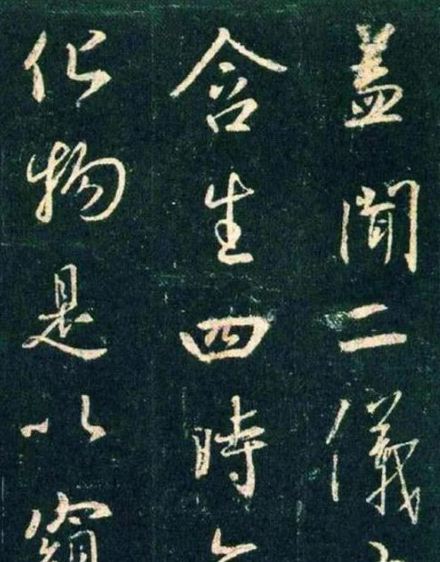 蓋聞二儀
含生四時
化物是以窺